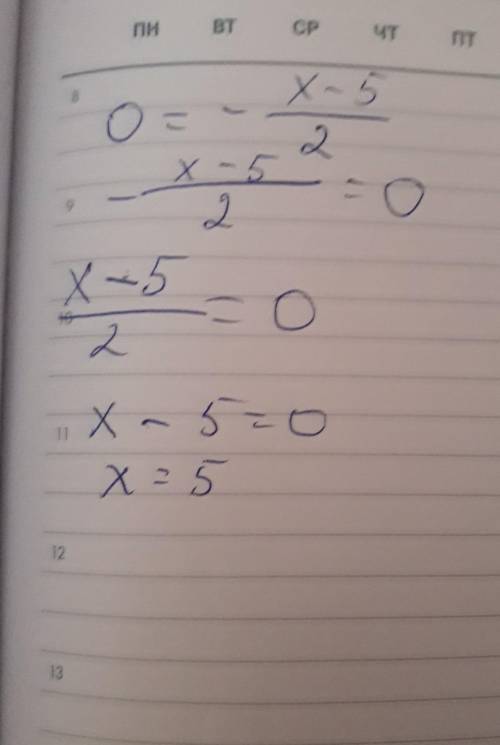 ПН ВТ СР ЧТ ПТ
8
0 = - (x - 5)/2
9
- (x - 5)/2 = 0
10
(x - 5)/2 = 0
11
x - 5 = 0
x = 5
12
13